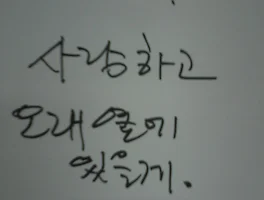 사랑하고
오래 옆에
있을게.